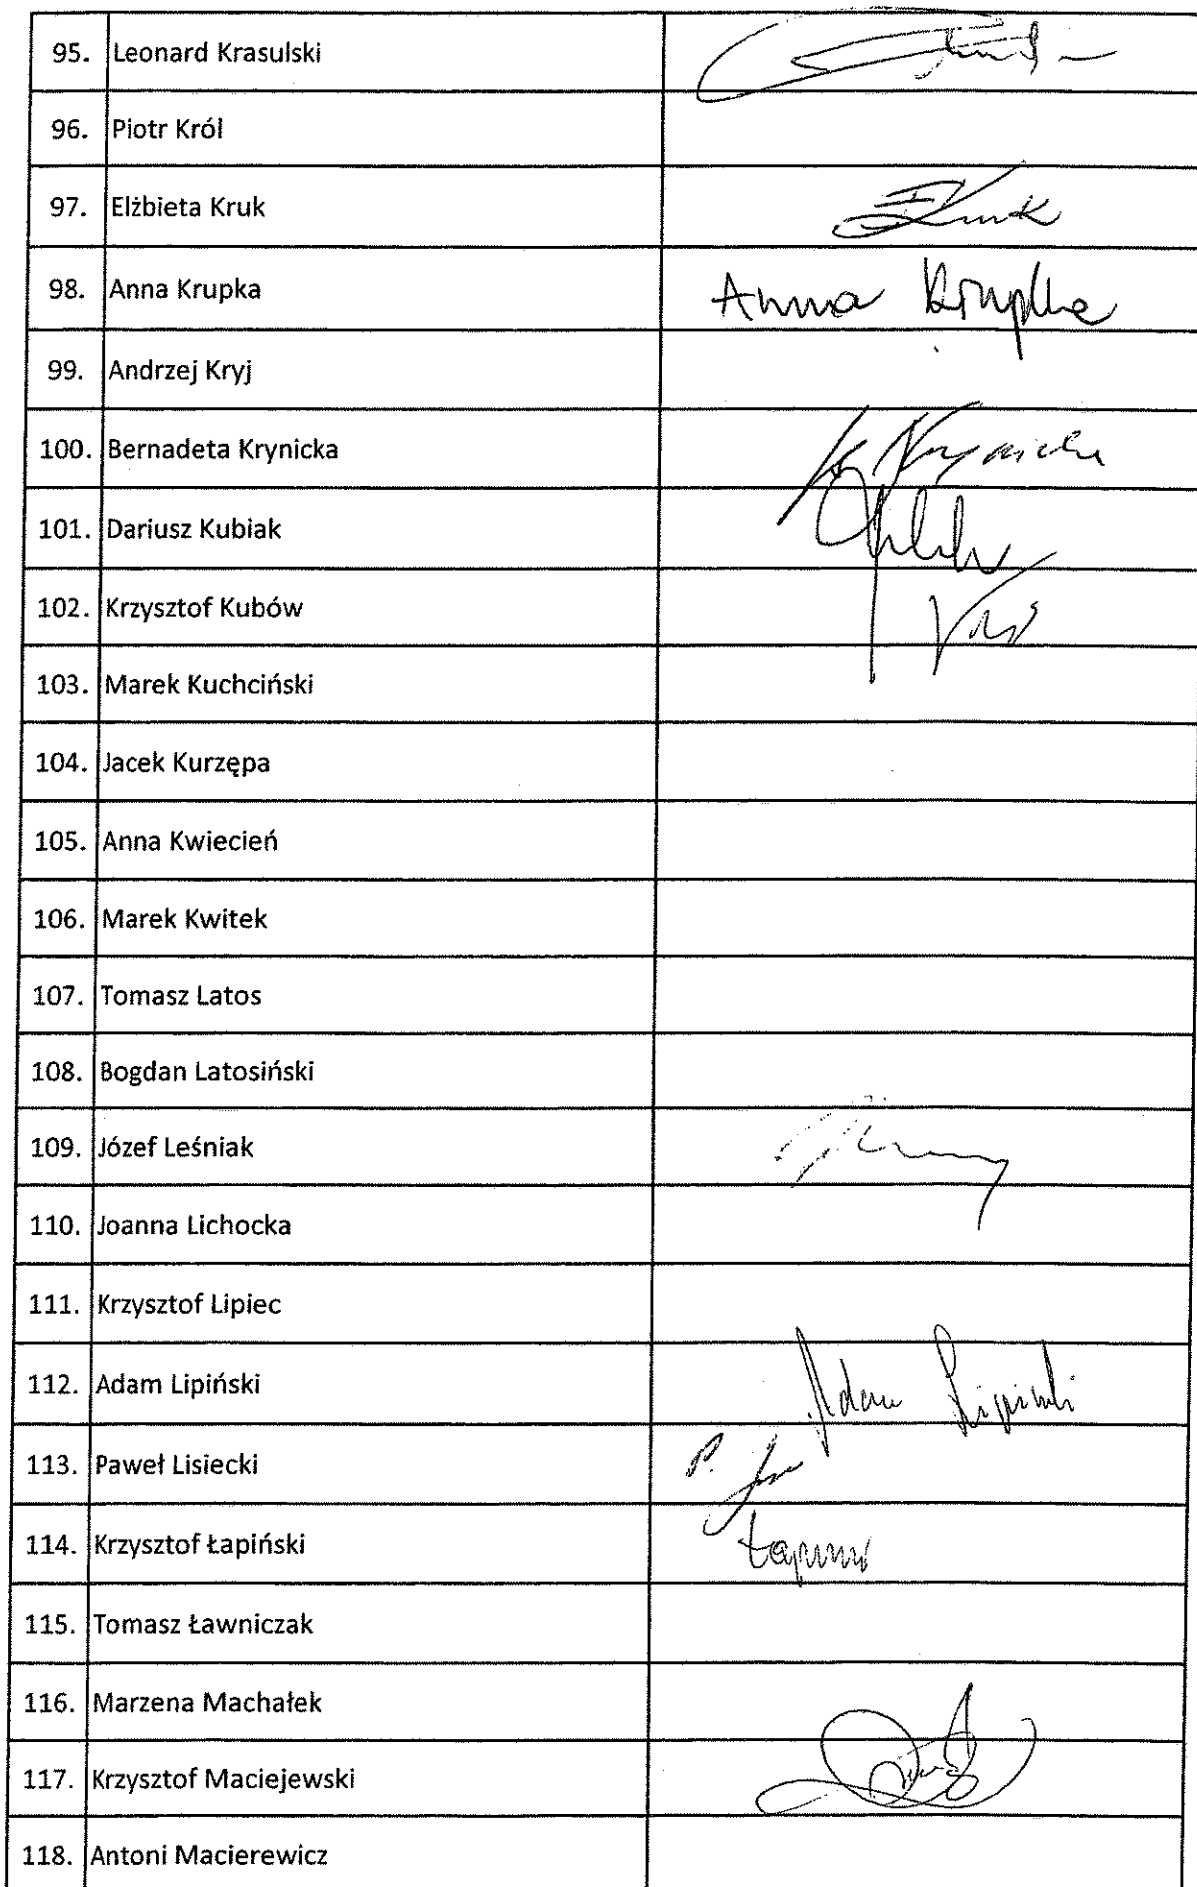 95. Leonard Krasulski
96. Piotr Król
97. Elżbieta Kruk EKruk
98. Anna Krupka Anna Krupka
99. Andrzej Kryj
100. Bernadeta Krynicka Krynicka
101. Dariusz Kubiak
102. Krzysztof Kubów
103. Marek Kuchciński
104. Jacek Kurzępa
105. Anna Kwiecień
106. Marek Kwitek
107. Tomasz Latos
108. Bogdan Latosiński
109. Józef Leśniak
110. Joanna Lichocka
111. Krzysztof Lipiec
112. Adam Lipiński Adam Lipiński
113. Paweł Lisiecki P.
114. Krzysztof Łapiński
115. Tomasz Ławniczak
116. Marzena Machałek
117. Krzysztof Maciejewski
118. Antoni Macierewicz